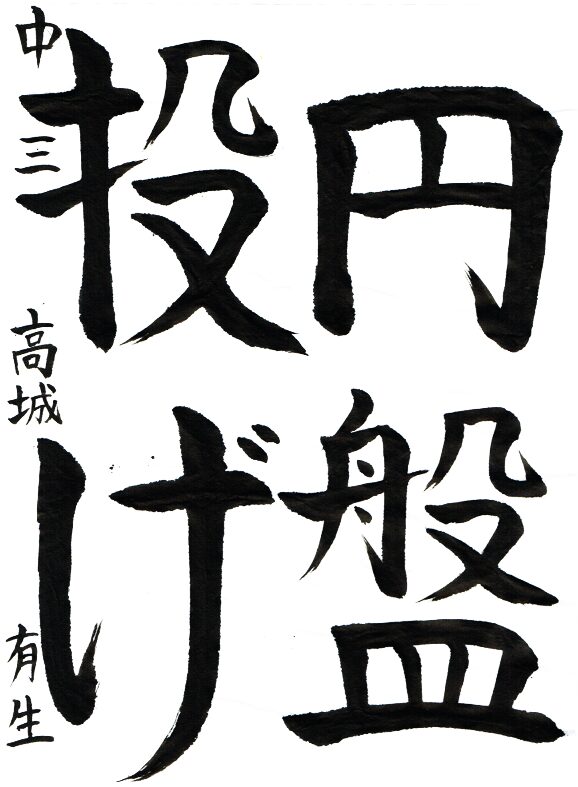 円盤
投げ
中三 高城 有生